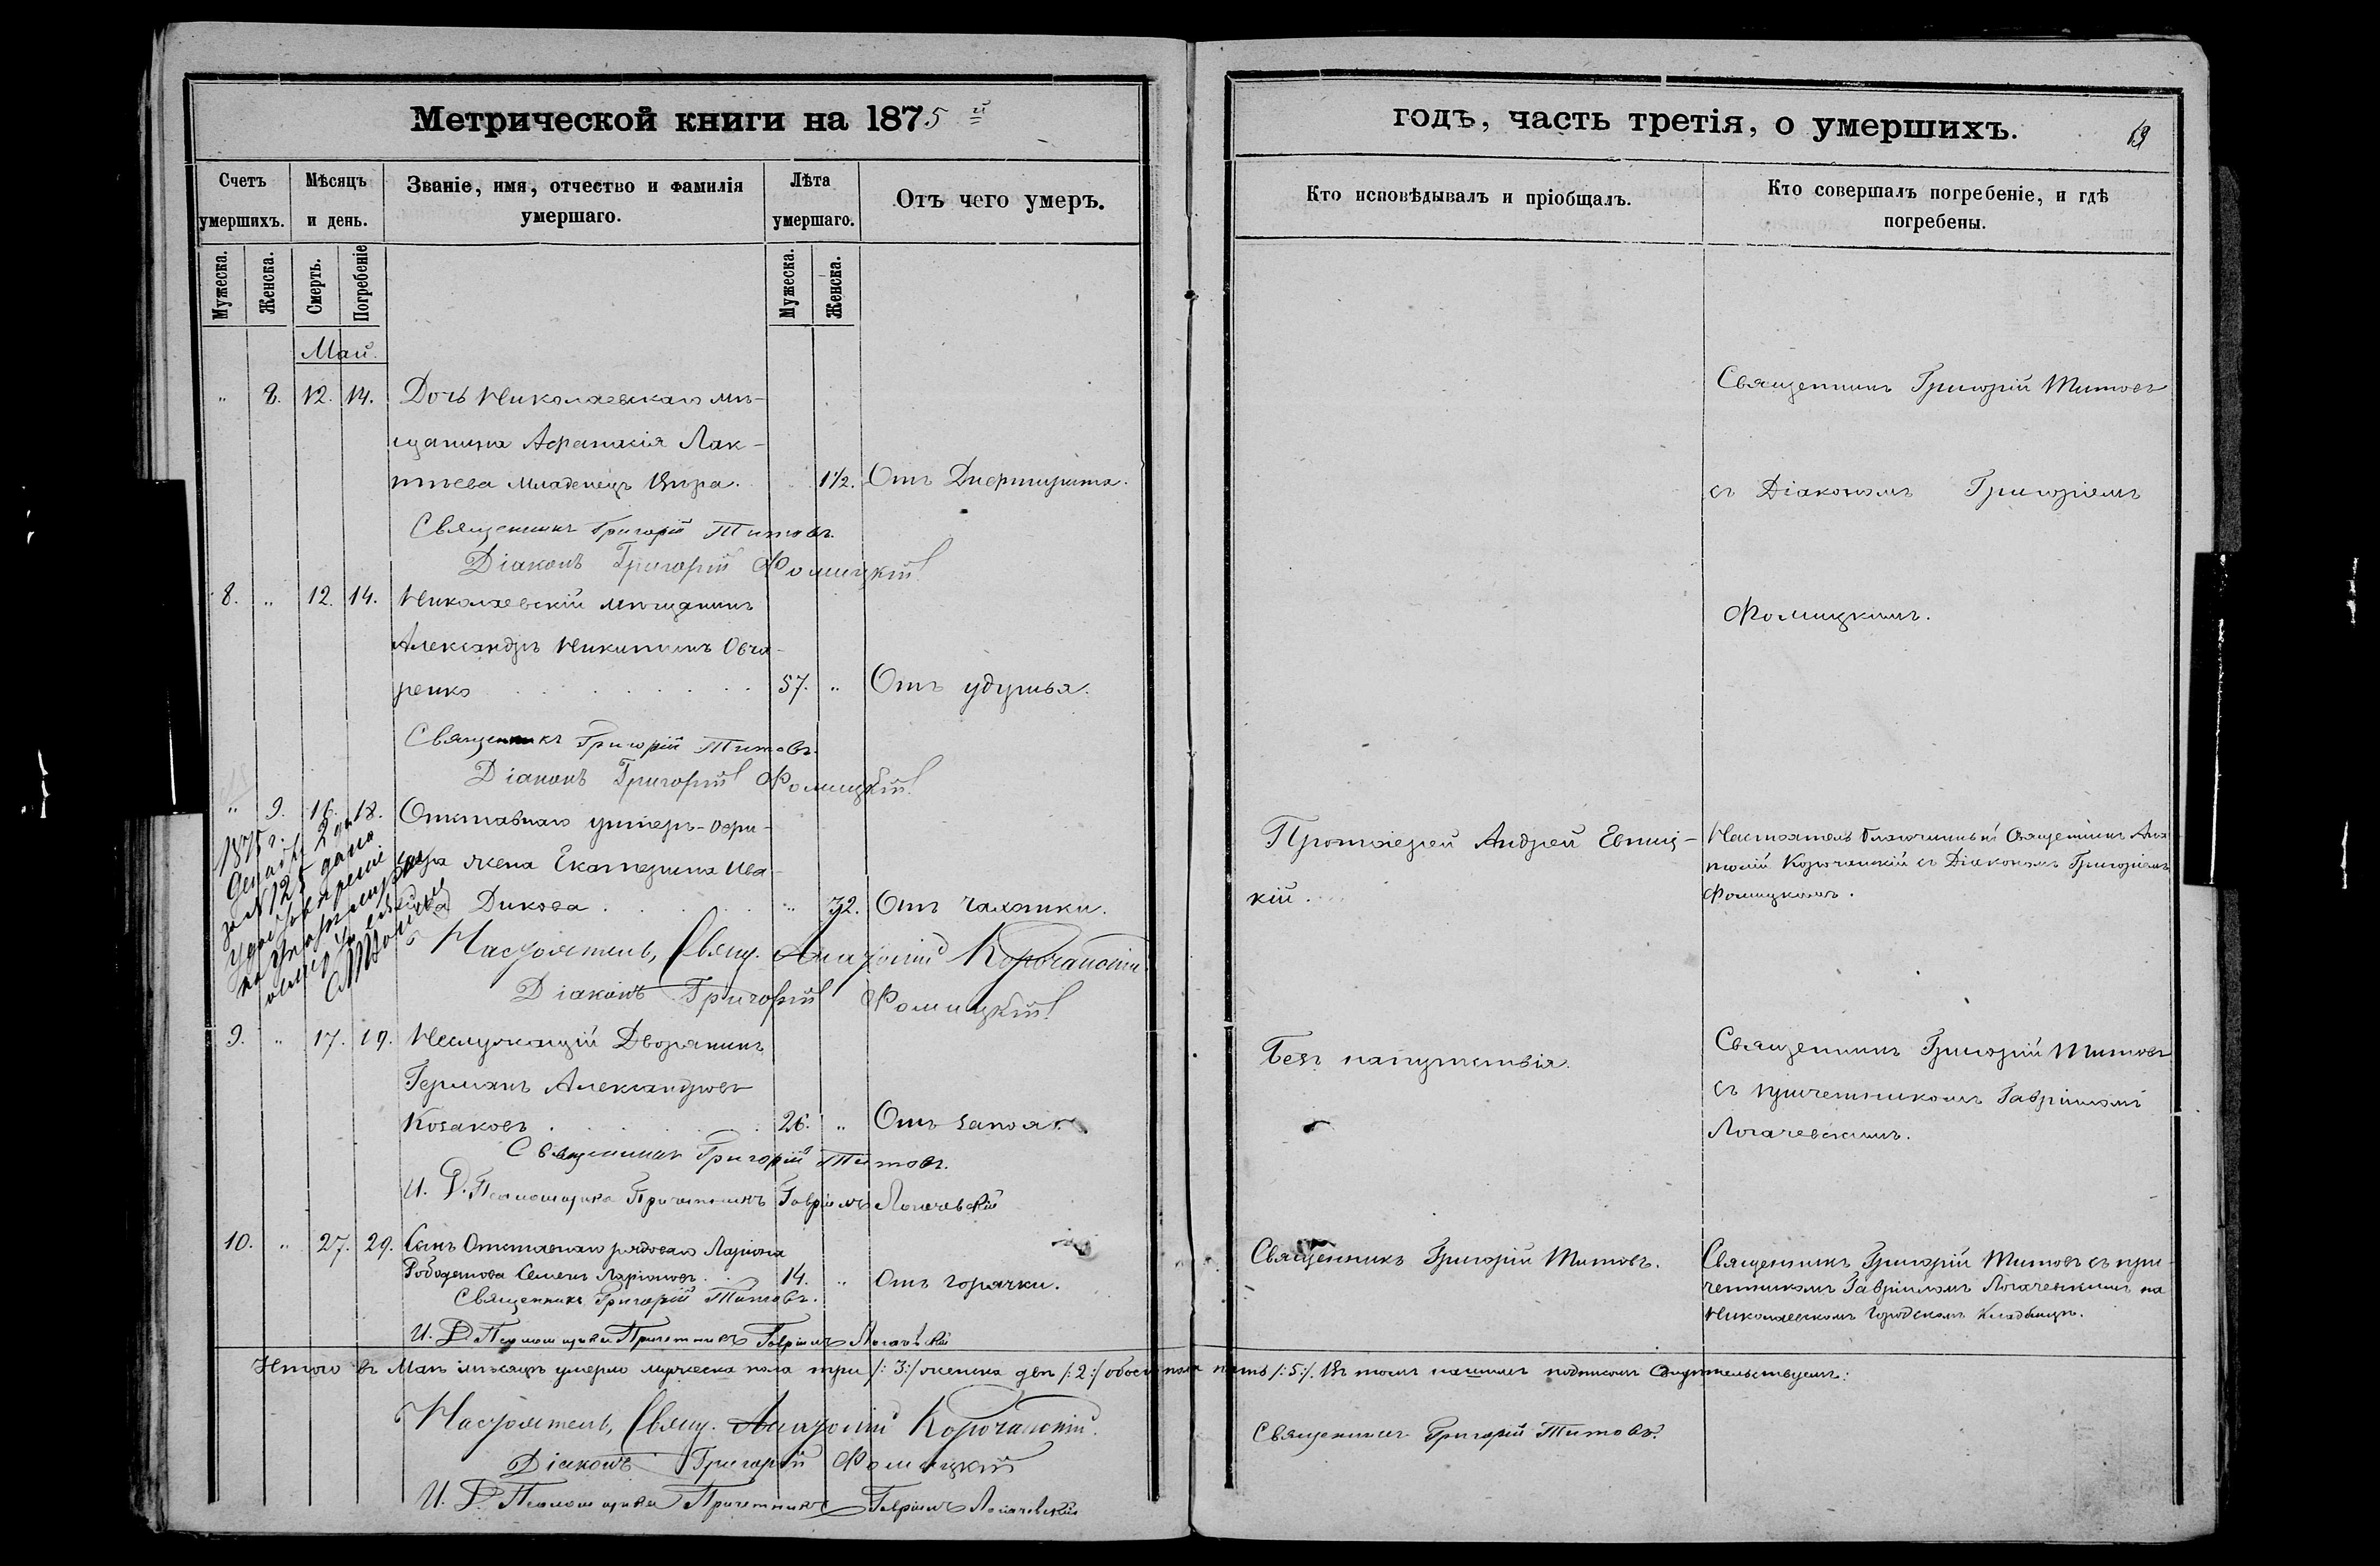 Метрической книги на 1875 й
годъ, часть третія, о умершихъ.
Счетъ умершихъ.
Мѣсяцъ и день.
Званіе, имя, отчество и фамилія умершаго.
Лѣта умершаго.
Отъ чего умеръ.
Кто исповѣдывалъ и пріобщалъ.
Кто совершалъ погребеніе, и гдѣ погребены.
Мужеска.
Женска.
Смерть.
Погребеніе
Мужеска.
Женска.
Май.
„ 8. 12. 14. Дочь Николаевскаго мѣ-
щанина Афанасія Лак-
тѣева младенецъ Вѣра. 1½. Отъ Диѳтирита.
Священникъ Григорій Титовъ.
Діаконъ Григорій Фомицкій
Священникъ Григорій Титовъ
съ Діакономъ Григоріемъ
Фомицкимъ.
8. „ 12. 14. Николаевскій мѣщанинъ
Александръ Никитинъ Овча-
ренко 57. „ Отъ удушья.
Священникъ Григорій Титовъ.
Діаконъ Григорій Фомицкій
„ 9. 16. 18. Отставнаго унтеръ-офи-
цера жена Екатерина Ива-
нова Дикова „ 32. Отъ чахотки.
Настоятель, Свящ. Анатолій Корочанскій
Діаконъ Григорій Фомицкій
1875 г.
за № 125 дано
Протоіерей Андрей Евниц-
кій.
Настоятель Благочинный Священникъ Ана
толій Корочанскій съ Діакономъ Григоріемъ
Фомицкимъ.
9. „ 17. 19. Неслужащій Дворянинъ
Германъ Александровъ
Козаковъ 26. „ Отъ запоя.
Священникъ Григорій Титовъ.
И. Д. Псаломщика Причетникъ Гавріилъ Логачевскій
Безъ напутствія.
Священникъ Григорій Титовъ
съ причетникомъ Гавріиломъ
Логачевскимъ.
10. „ 27. 29. Сынъ Отставнаго рядоваго Ларіона
Семенъ Ларіоновъ 14. „ Отъ горячки.
Священникъ Григорій Титовъ.
И. Д. Псаломщика Причетникъ Гавріилъ Логачевскій
Священникъ Григорій Титовъ.
Священникъ Григорій Титовъ съ при-
четникомъ Гавріиломъ Логачевскимъ на
Николаевскомъ Городскомъ кладбищѣ.
Итого въ Маѣ мѣсяцѣ умерло мужеска пола три /:3:/ женска двѣ /:2:/ обоего пола пять /:5:/. Въ томъ нашимъ подписомъ свидѣтельствуемъ:
Настоятель, Свящ. Анатолій Корочанскій.
Діаконъ Григорій Фомицкій
И. Д. Псаломщика Причетникъ Гавріилъ Логачевскій
Священникъ Григорій Титовъ.